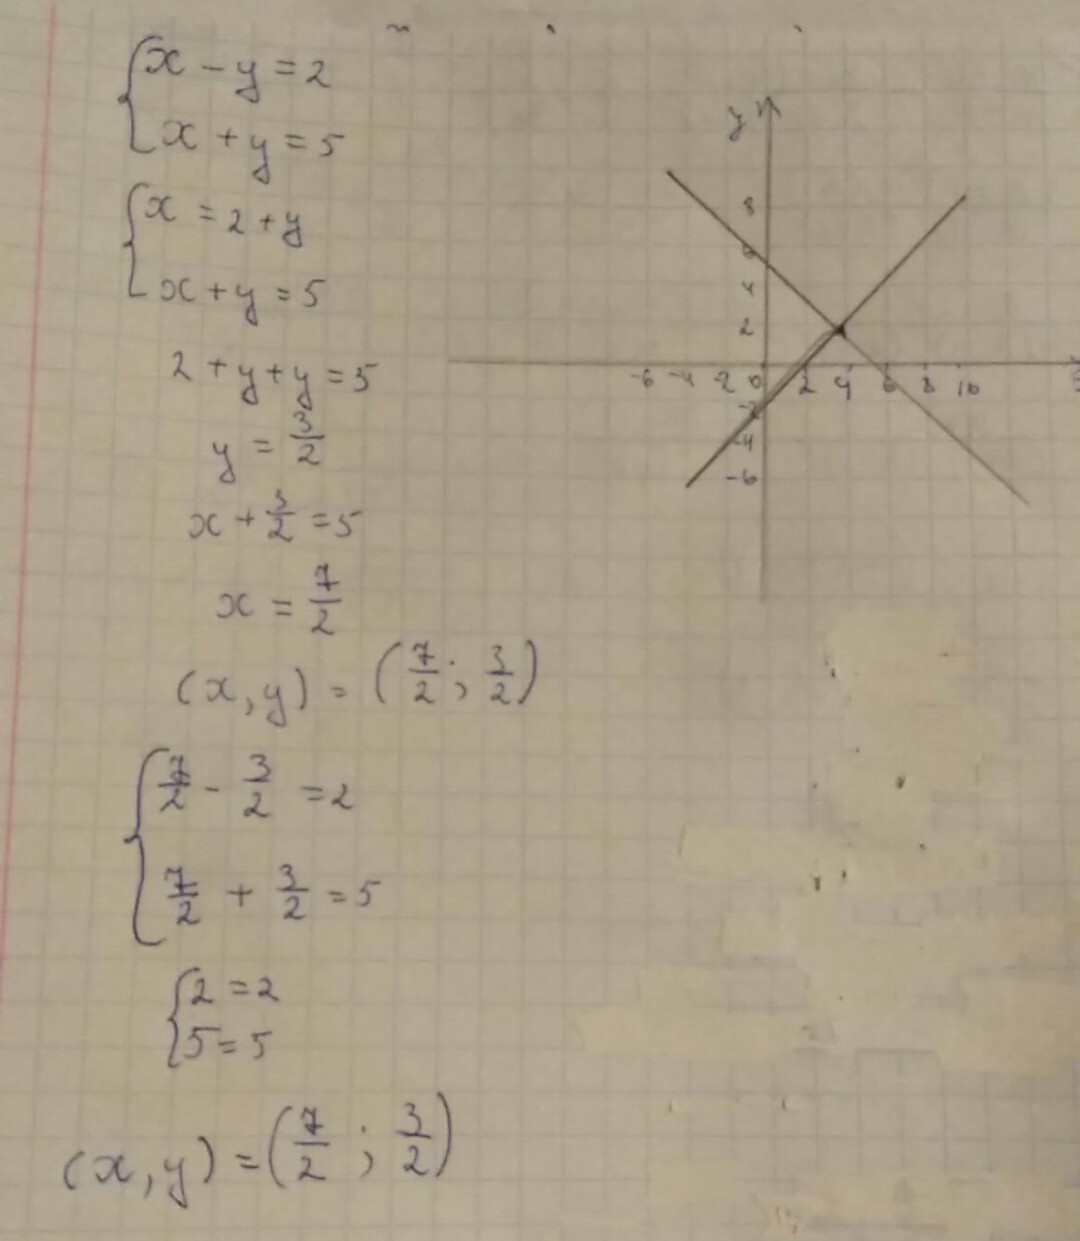 x - y = 2
x + y = 5
x = 2 + y
x + y = 5
2 + y + y = 5
y = 3/2
x + 3/2 = 5
x = 7/2
(x, y) = (7/2 ; 3/2)
7/2 - 3/2 = 2
7/2 + 3/2 = 5
2 = 2
5 = 5
(x, y) = (7/2 ; 3/2)
y
8
6
4
2
-6 -4 -2 0 2 4 6 8 10
-2
-4
-6